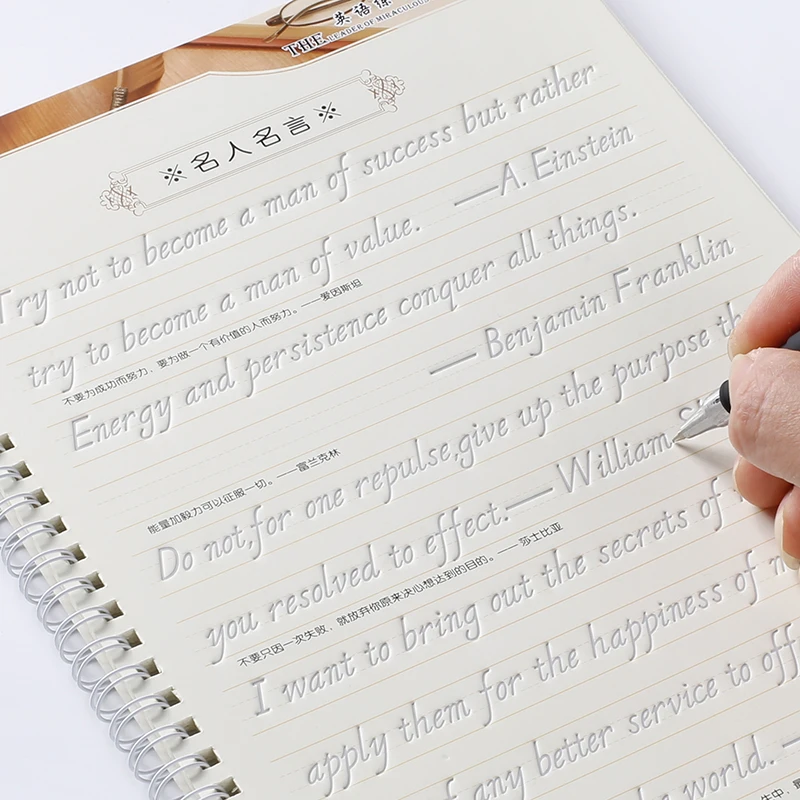 THE 英语练
LEADER OF MIRACULOUS
※名人名言※
Try not to become a man of success but rather
try to become a man of value. —A. Einstein
不要为成功而努力，要为做一个有价值的人而努力。——爱因斯坦
Energy and persistence conquer all things.
— Benjamin Franklin
能量加毅力可以征服一切。——富兰克林
Do not,for one repulse,give up the purpose th
you resolved to effect.—William S
不要只因一次失败，就放弃你原来决心想达到的目的。——莎士比亚
I want to bring out the secrets of
apply them for the happiness of m
of any better service to off
the world. —
生中，